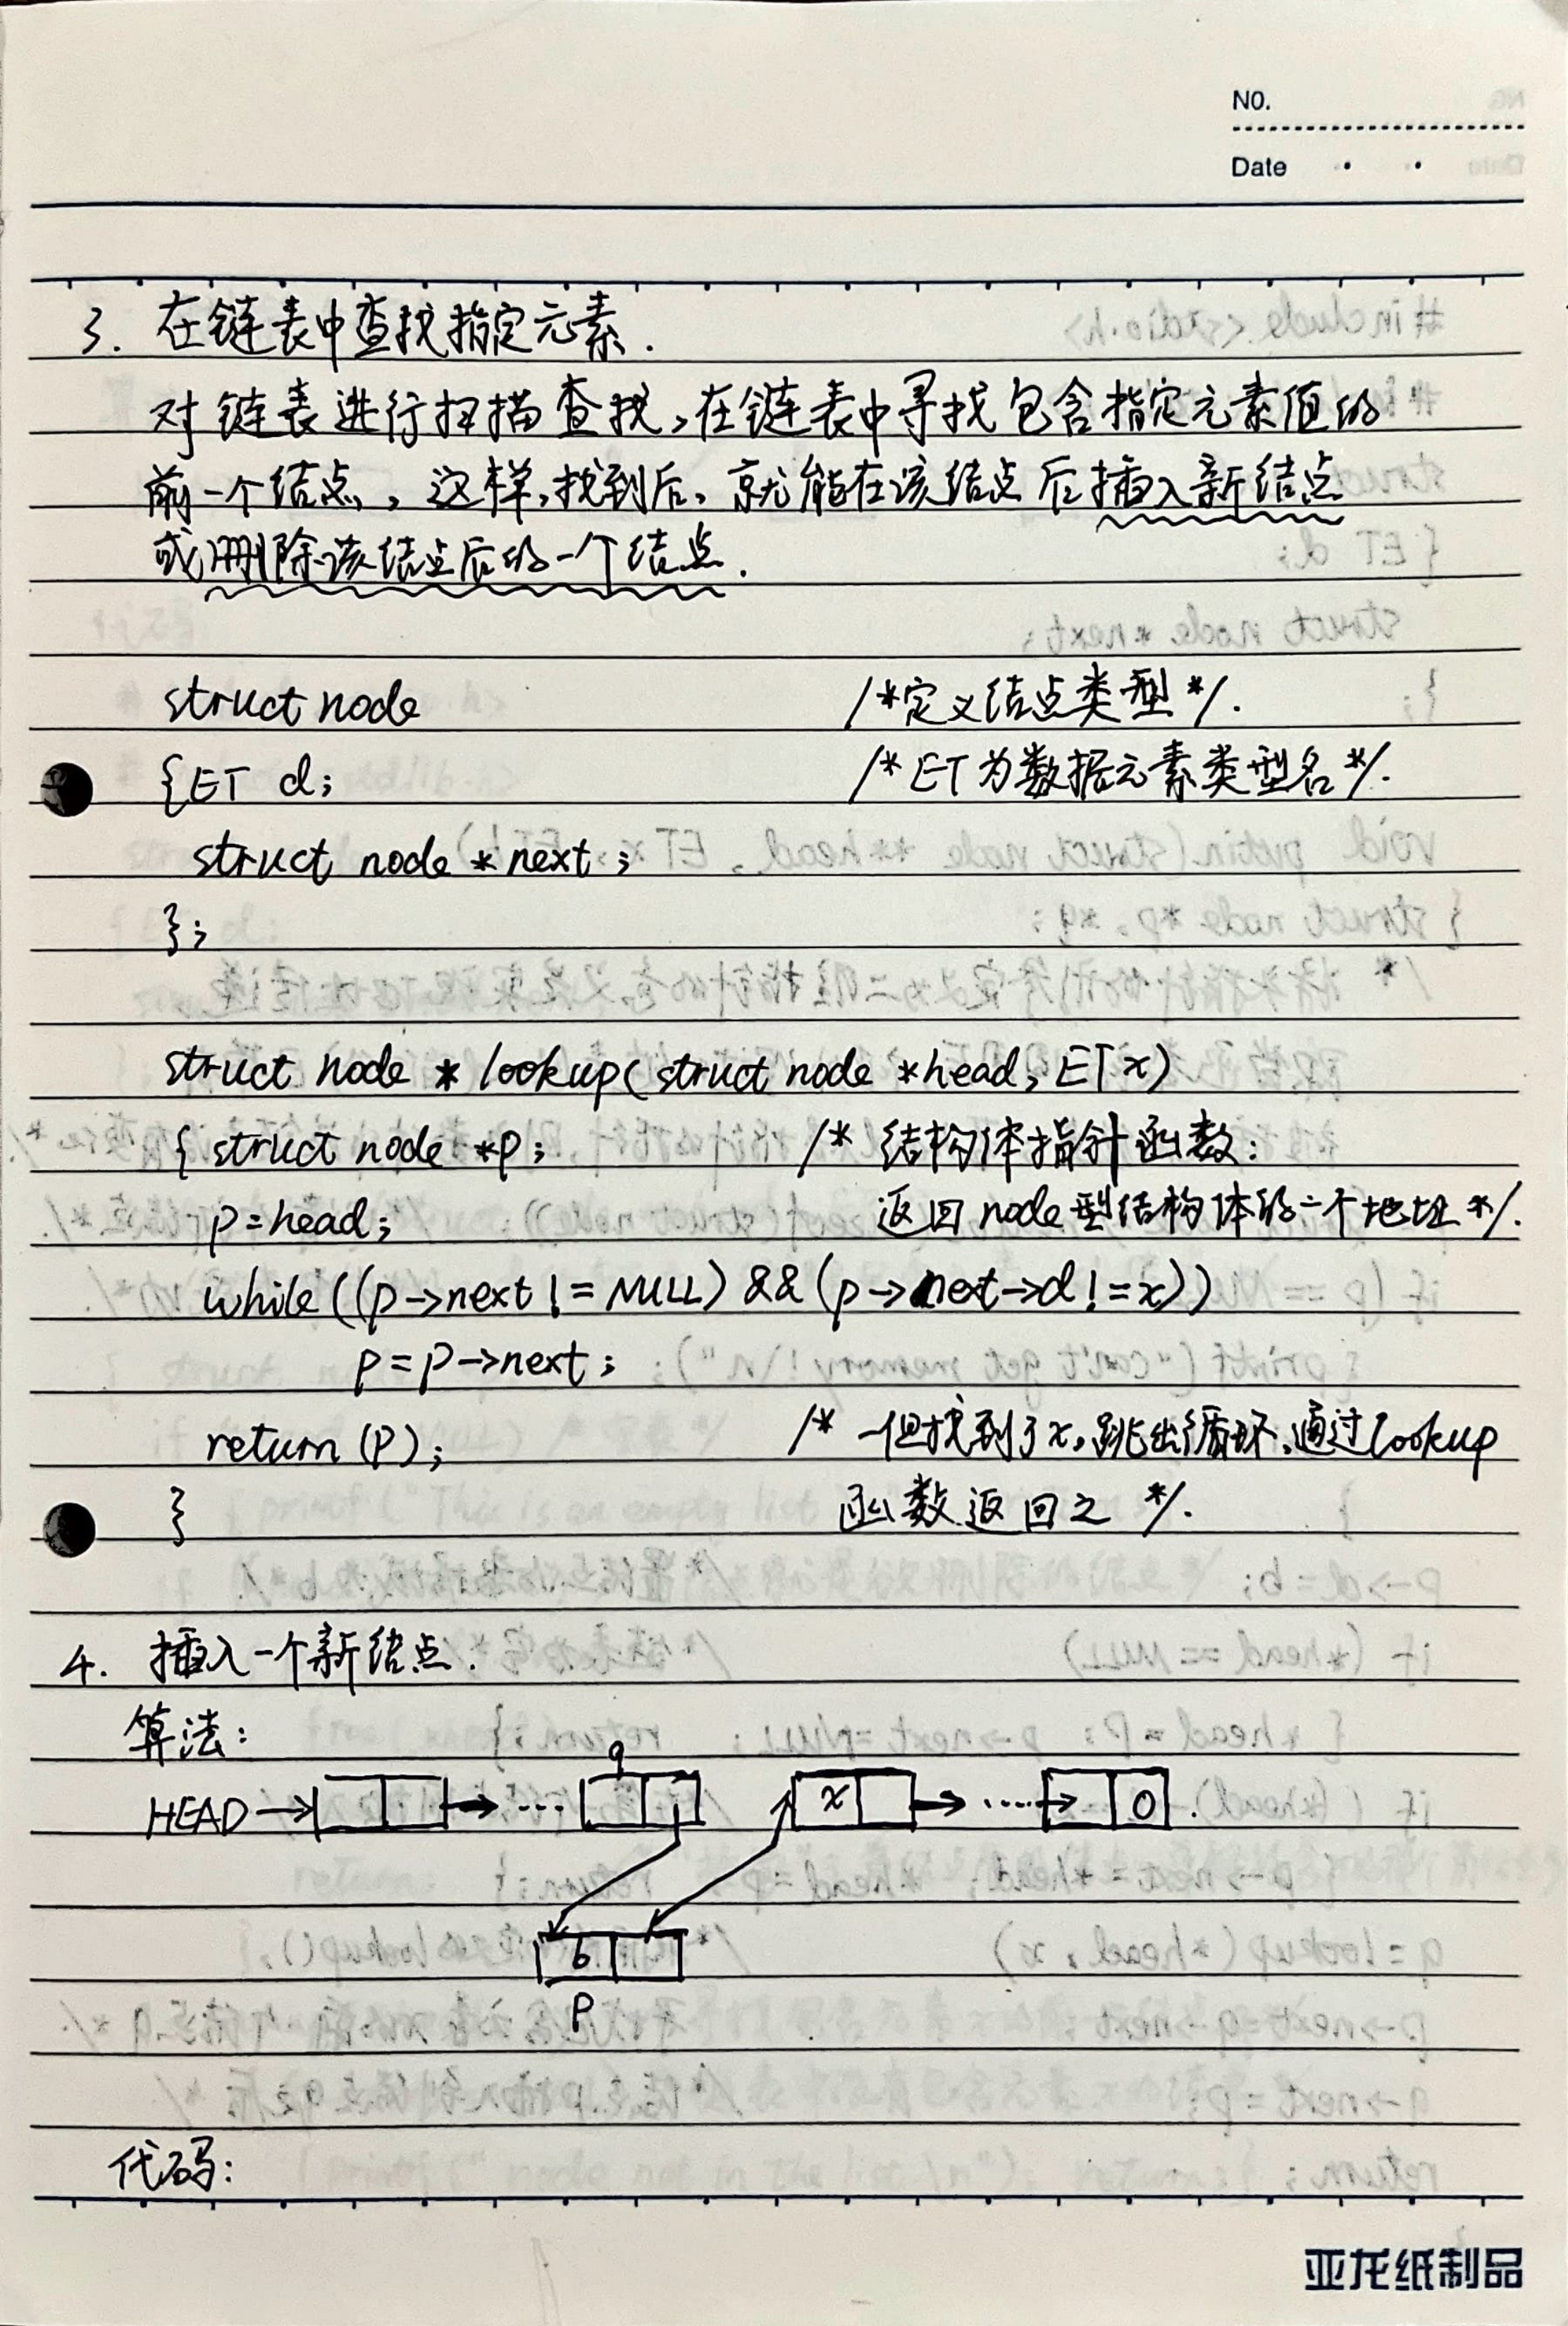 NO.
Date
3. 在链表中查找指定元素.
对链表进行扫描查找,在链表中寻找包含指定元素值的
前一个结点,这样,找到后,就能在该结点后插入新结点
或删除该结点后的一个结点.
struct node /*定义结点类型*/.
{ET d; /*ET为数据元素类型名*/.
struct node *next;
};
struct node * lookup(struct node *head, ET x)
{ struct node *p; /* 结构体指针函数:
p=head; 返回node型结构体的一个地址*/.
while((p->next!=NULL)&&(p->next->d!=x))
p=p->next;
return(p); /* 一但找到了x,跳出循环,通过lookup
} 函数返回之 */.
4. 插入一个新结点.
算法:
q
HEAD→ → ... x → ....→ 0 .
b
p
代码:
亚龙纸制品